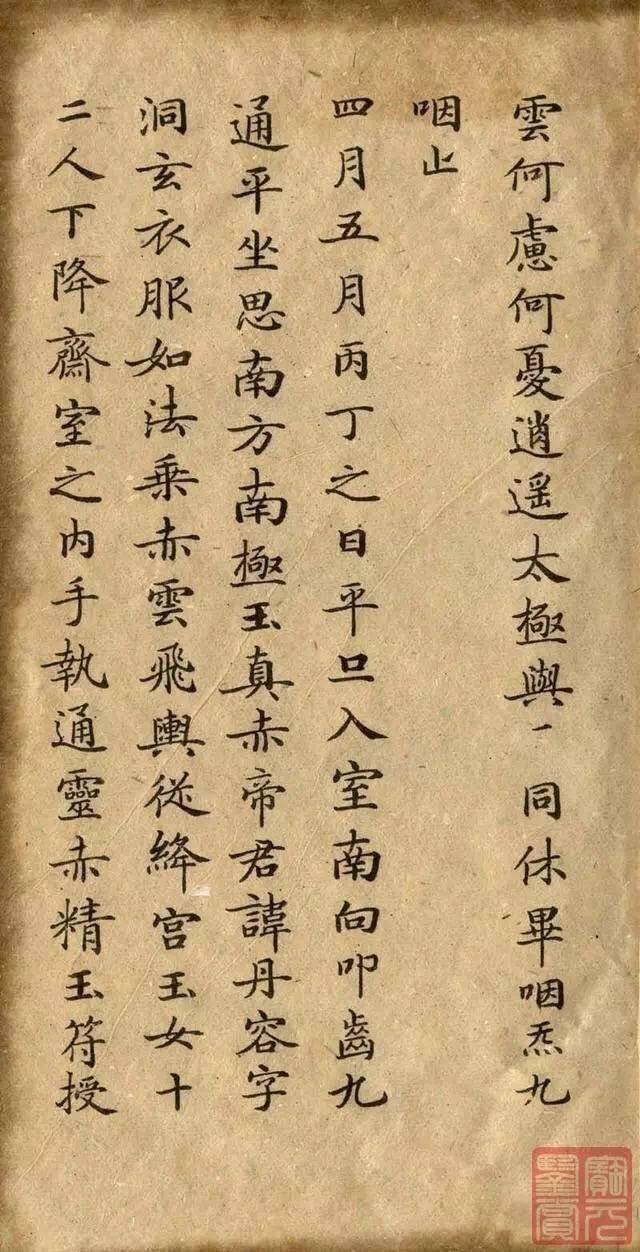 雲何慮何憂逍遥太極與一同休畢咽炁九
咽止
四月五月丙丁之日平旦入室南向叩齒九
通平坐思南方南極玉真赤帝君諱丹容字
洞玄衣服如法乘赤雲飛輿從絳宫玉女十
二人下降齋室之内手執通靈赤精玉符授